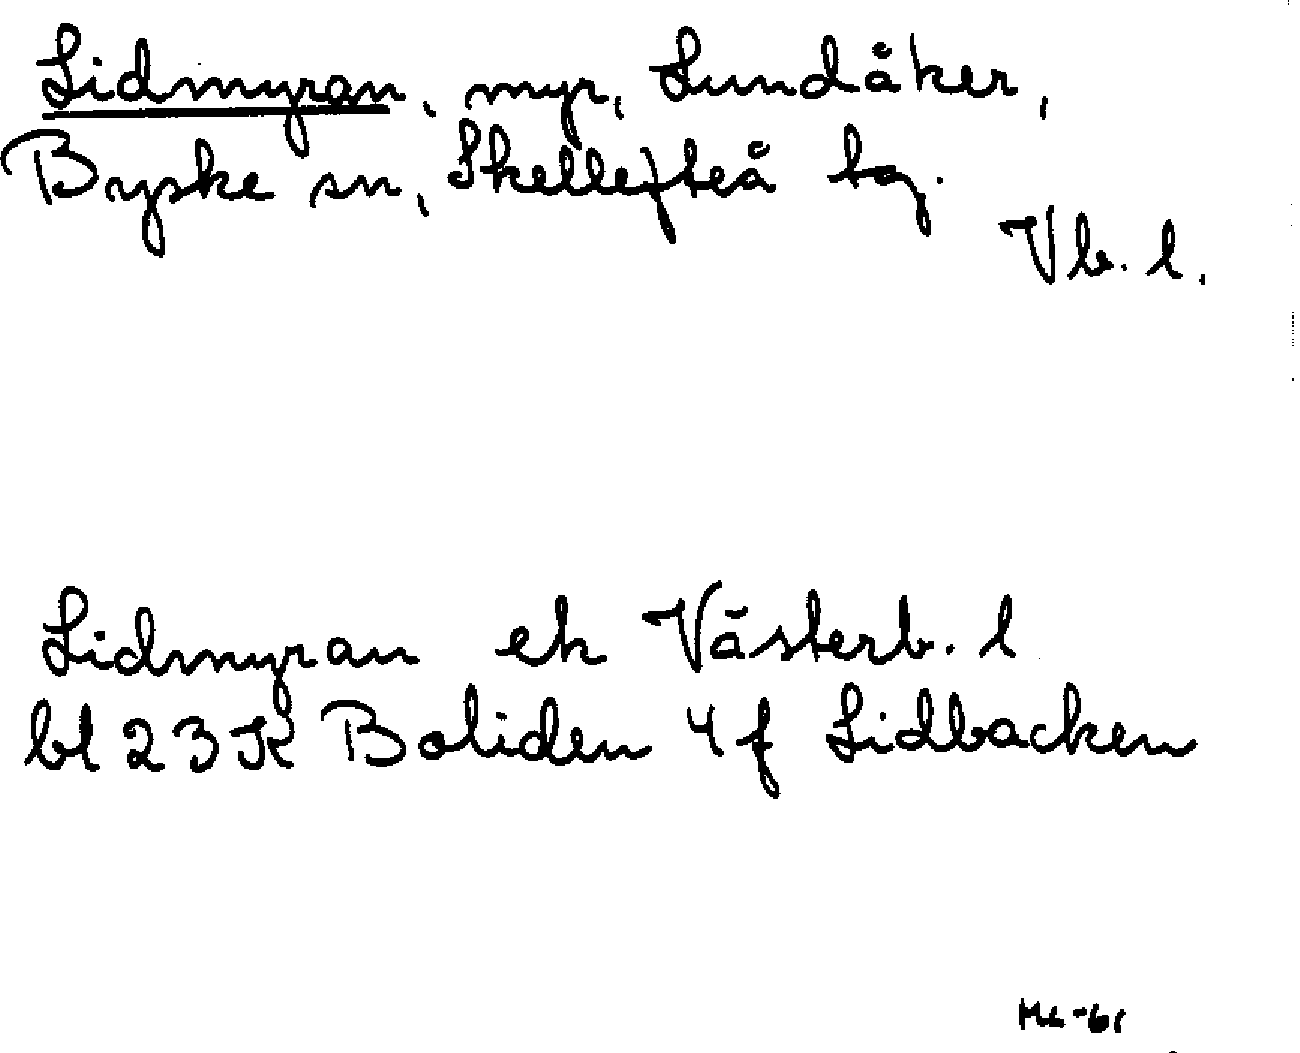 Lidmyran, myr, Lundåker,
Byske sn, Skellefteå tg.
Vb. l.
Lidmyran ek Västerb. l
bl 23K Boliden 4f Lidbacken
ML-61